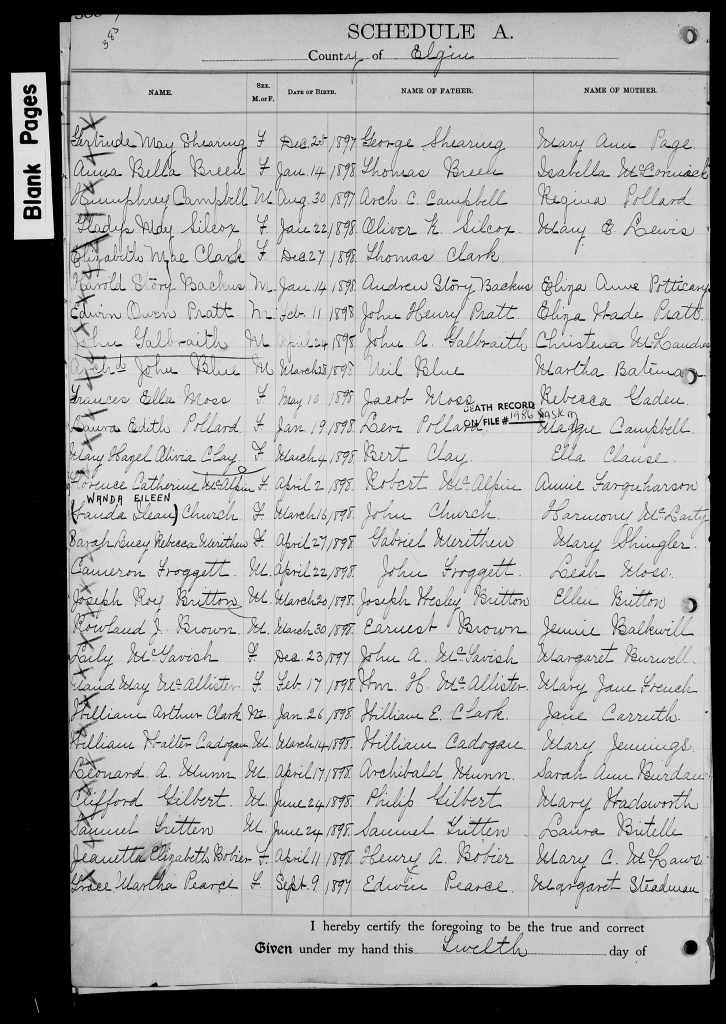 383
SCHEDULE A.
County of Elgin
Blank Pages
NAME. SEX. M. or F. DATE OF BIRTH. NAME OF FATHER. NAME OF MOTHER.
Gertrude May Shearing F Dec. 25 1897 George Shearing Mary Ann Page
Anna Bella Breen F Jan. 14 1898 Thomas Breen Isabella McCormack
Humphrey Campbell M Aug. 30 1897 Arch. C. Campbell Regina Pollard
Gladys May Silcox F Jan 22 1898. Oliver K. Silcox Mary E Lewis
Elizabeth Mae Clark F Dec. 27 1898. Thomas Clark
Harold Story Backus M. Jan 14 1898 Andrew Story Backus Eliza Anne Potticary
Edwin Owen Pratt M. Feb. 11 1898 John Henry Pratt. Eliza Wade Pratt
John Galbraith M April 24 1898. John A. Galbraith Christena McLandress
Archd John Blue M March 28 1898 Neil Blue Martha Bateman
Frances Ella Moss F. May 10 1898. Jacob Moss Rebecca Gaden.
DEATH RECORD
ON FILE # 1986 SASK
Laura Edith Pollard F. Jan. 19 1898. Levi Pollard Maggie Campbell
Mary Hazel Alivia Clay. F March 4 1898. Bert Clay. Ella Clause.
Florence Catherine McAlpin F April 2 1898. Robert McAlpin Annie Farquharson
WANDA EILEEN
(Wanda Ilean) Church F. March 16 1898. John Church. Harmony McCarty
Sarah Lucy Rebecca Merithew F. April 27 1898. Gabriel Merithew Mary Shingler.
Cameron Froggett. M. April 22 1898. John Froggett. Leah Moss.
Joseph Roy Britton M March 20 1898. Joseph Wesley Britton Ellen Britton
Rowland J. Brown M. March 30 1898. Earnest Brown Jennie Balkwill
Lily McTavish F. Dec. 23 1897 John A. McTavish Margaret Burwell.
Maud May McAllister F. Feb. 17 1898 Wm. H. McAllister. Mary Jane French
William Arthur Clark M. Jan. 26 1898. William E. Clark. Jane Carruth
William Walter Cadogan M. March 14 1898. William Cadogan. Mary Jennings.
Leonard A. Munn M. April 17 1898. Archibald Munn. Sarah Ann Burdan
Clifford Gilbert. M. June 24 1898. Philip Gilbert Mary Wadsworth
Samuel Tritten M. June 24 1898. Samuel Tritten Laura Bitelle
Jeanetta Elizabeth Bobier F. April 11 1898. Henry A. Bobier Mary C. McLaws
Grace Martha Pearce F Sept. 9 1897 Edwin Pearce. Margaret Steadman
I hereby certify the foregoing to be the true and correct
Given under my hand this Twelfth day of